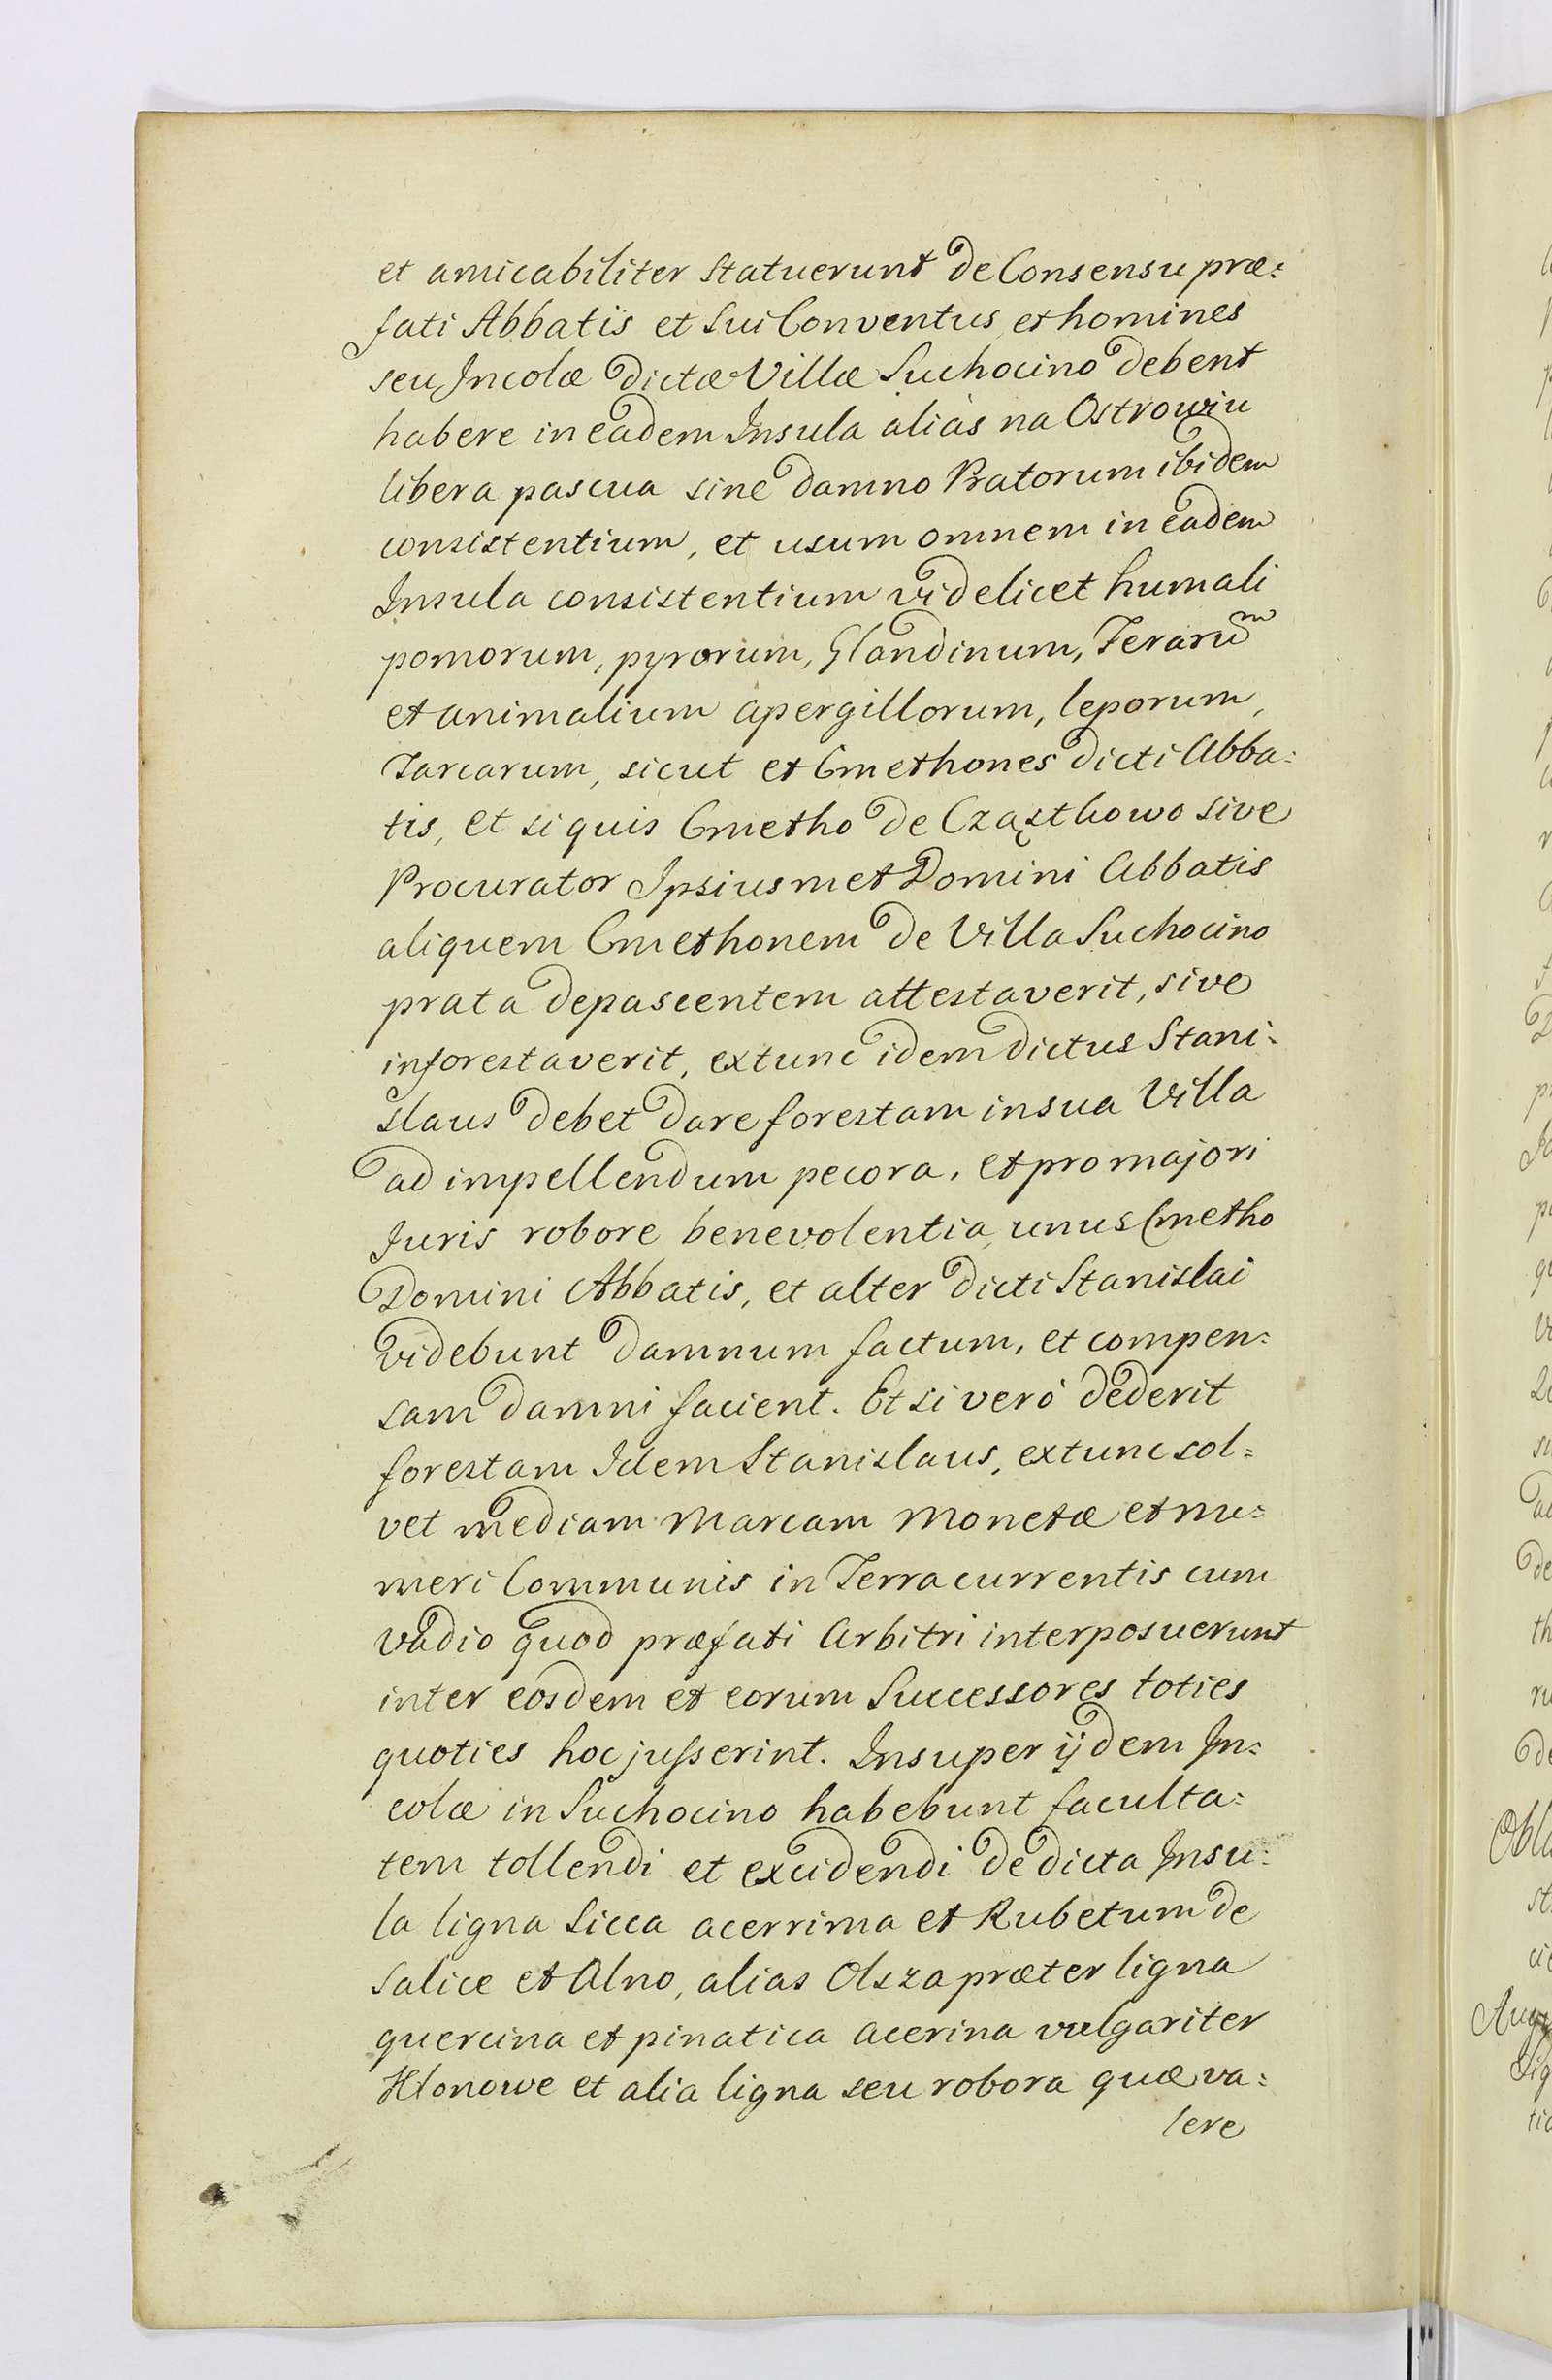 et amicabiliter statuerunt de Consensu præ=
fati Abbatis et sui Conventus, et homines
seu Incolæ dictæ Villæ Suchocino debent
habere in eadem Insula aliàs na Ostrowiu
libera pascua sine damno Pratorum ibidem
consistentium, et usum omnem in eadem
Insula consistentium videlicet humali
pomorum, pyrorum, Glandinum, Ferarum
et animalium apergillorum, leporum,
Tarcarum, sicut et Cmethones dicti Abba=
tis, et si quis Cmetho de Cząsthowo sive
Procurator Ipsiusmet Domini Abbatis
aliquem Cmethonem de Villa Suchocino
prata depascentem attestaverit, sive
inforestaverit, extunc idem dictus Stani=
slaus debet dare forestam in sua Villa
ad impellendum pecora, et pro majori
Juris robore benevolentia, unus Cmetho
Domini Abbatis, et alter dicti Stanislai
videbunt damnum factum, et compen=
sam damni facient. Et si verò dederit
forestam Idem Stanislaus, extunc sol=
vet mediam Marcam Monetæ et nu=
meri Communis in Terra currentis cum
vadio quod præfati Arbitri interposuerunt
inter eosdem et eorum Successores toties
quoties hoc jusserint. Insuper ijdem In=
colæ in Suchocino habebunt faculta=
tem tollendi et excidendi de dicta Insu=
la ligna sicca acerrima et Rubetum de
Salice et Alno, alias Olsza præter ligna
quercina et pinatica acerina vulgariter
Klonowe et alia ligna seu robora quæ va=
lere